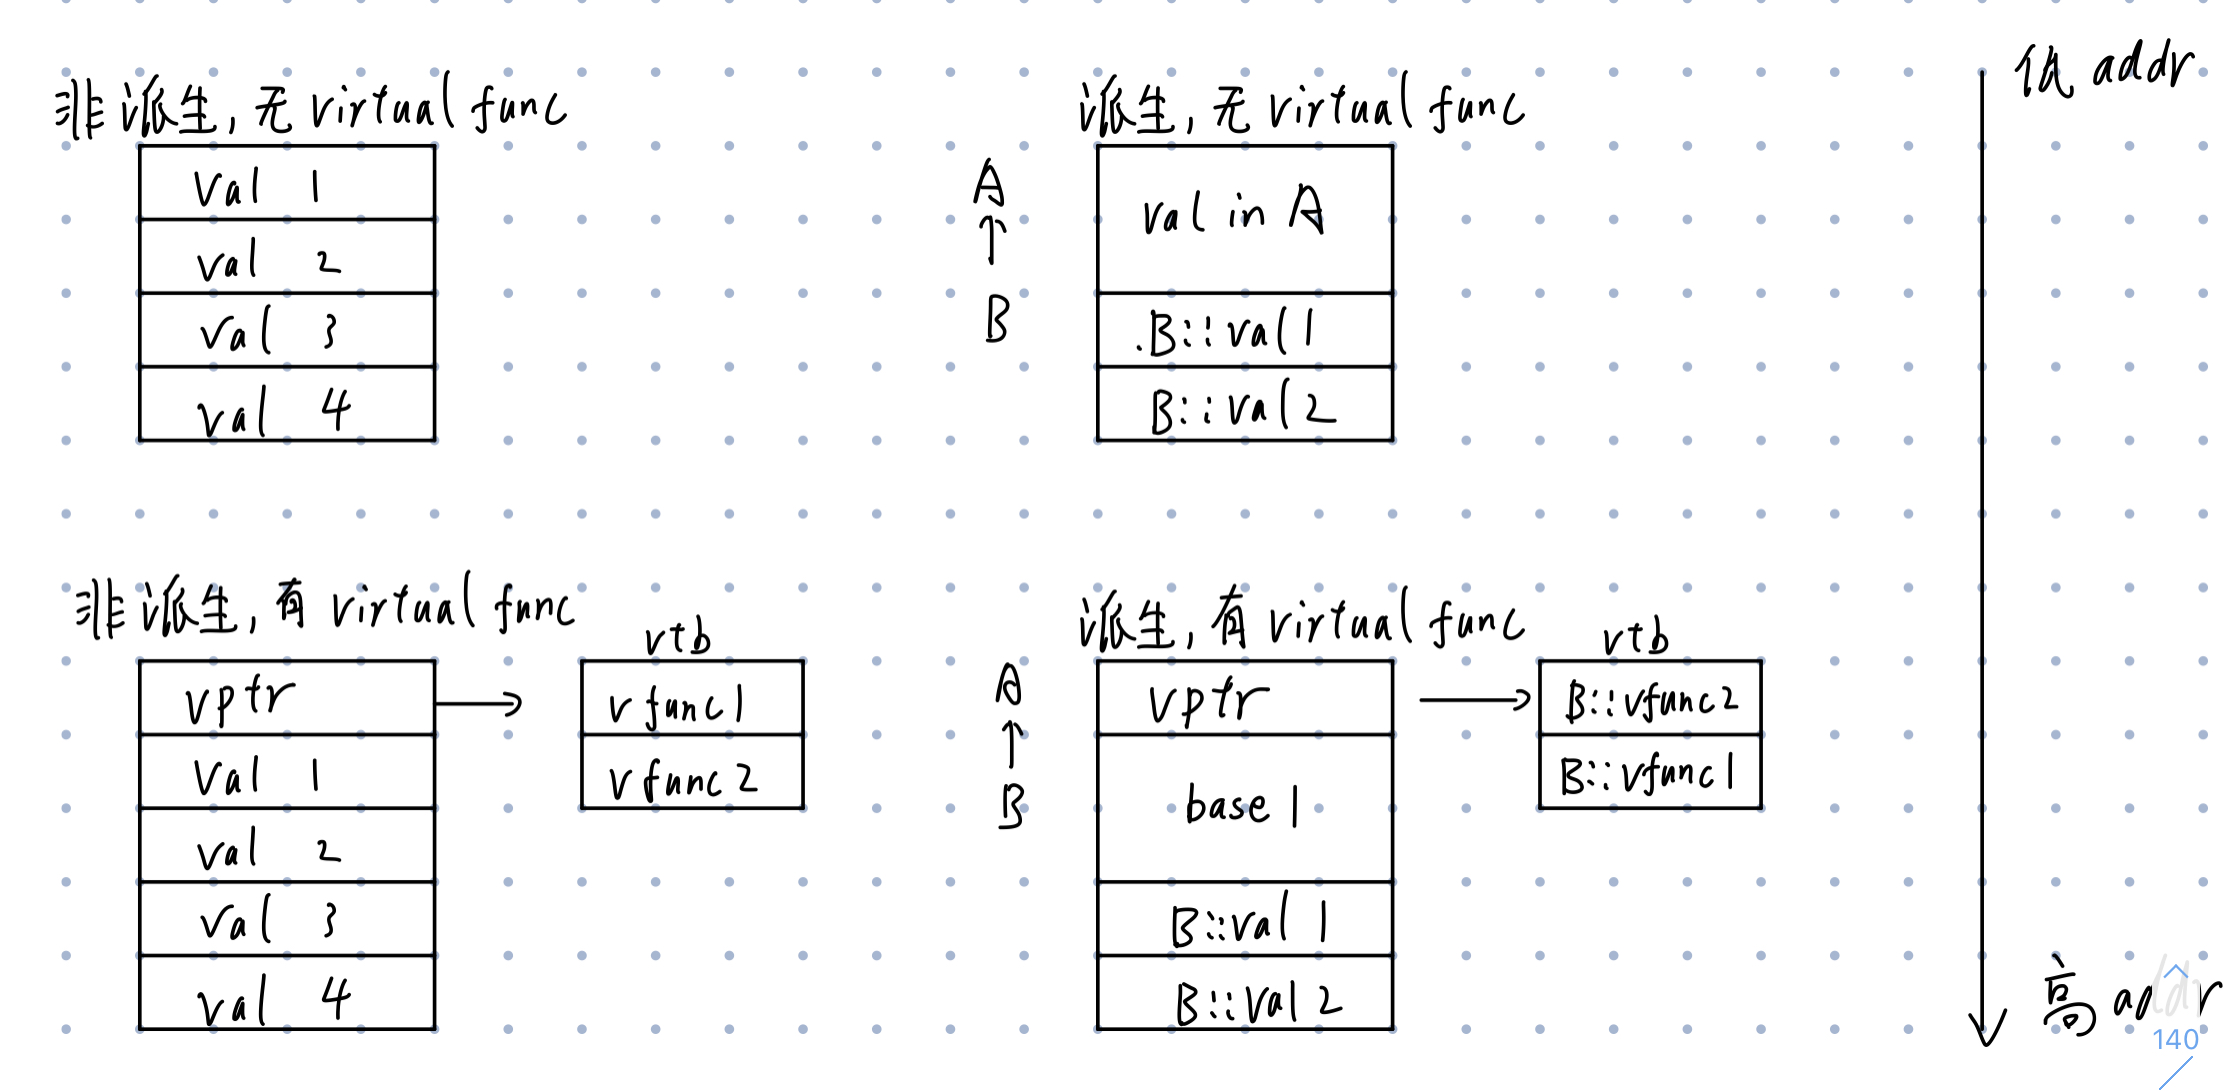 低 addr
非派生, 无 virtual func
val 1
val 2
val 3
val 4
派生, 无 virtual func
A
↑
B
val in A
.B::val 1
B::val 2
非派生, 有 virtual func
vptr
val 1
val 2
val 3
val 4
vtb
vfunc1
vfunc2
派生, 有 virtual func
A
↑
B
vptr
base 1
B::val 1
B::val 2
vtb
B::vfunc2
B::vfunc1
高 addr
140